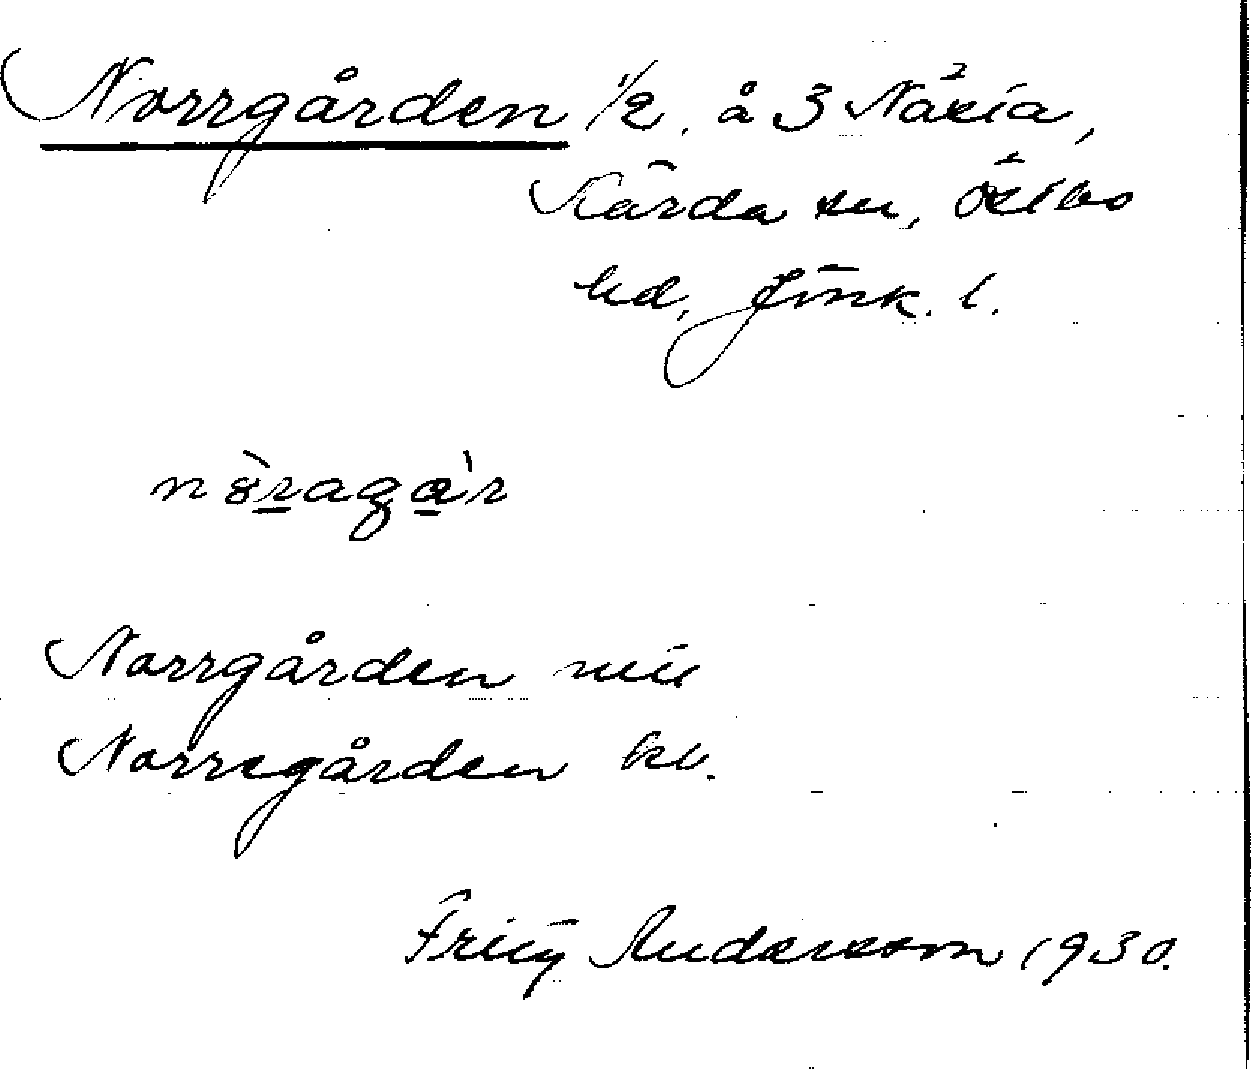 Norrgården 1/2 å 3 Näsla,
Kärda sn, Östbo
hd, Jönk. l.
Norrgården
Norregården
Fritz Andersson 1930.